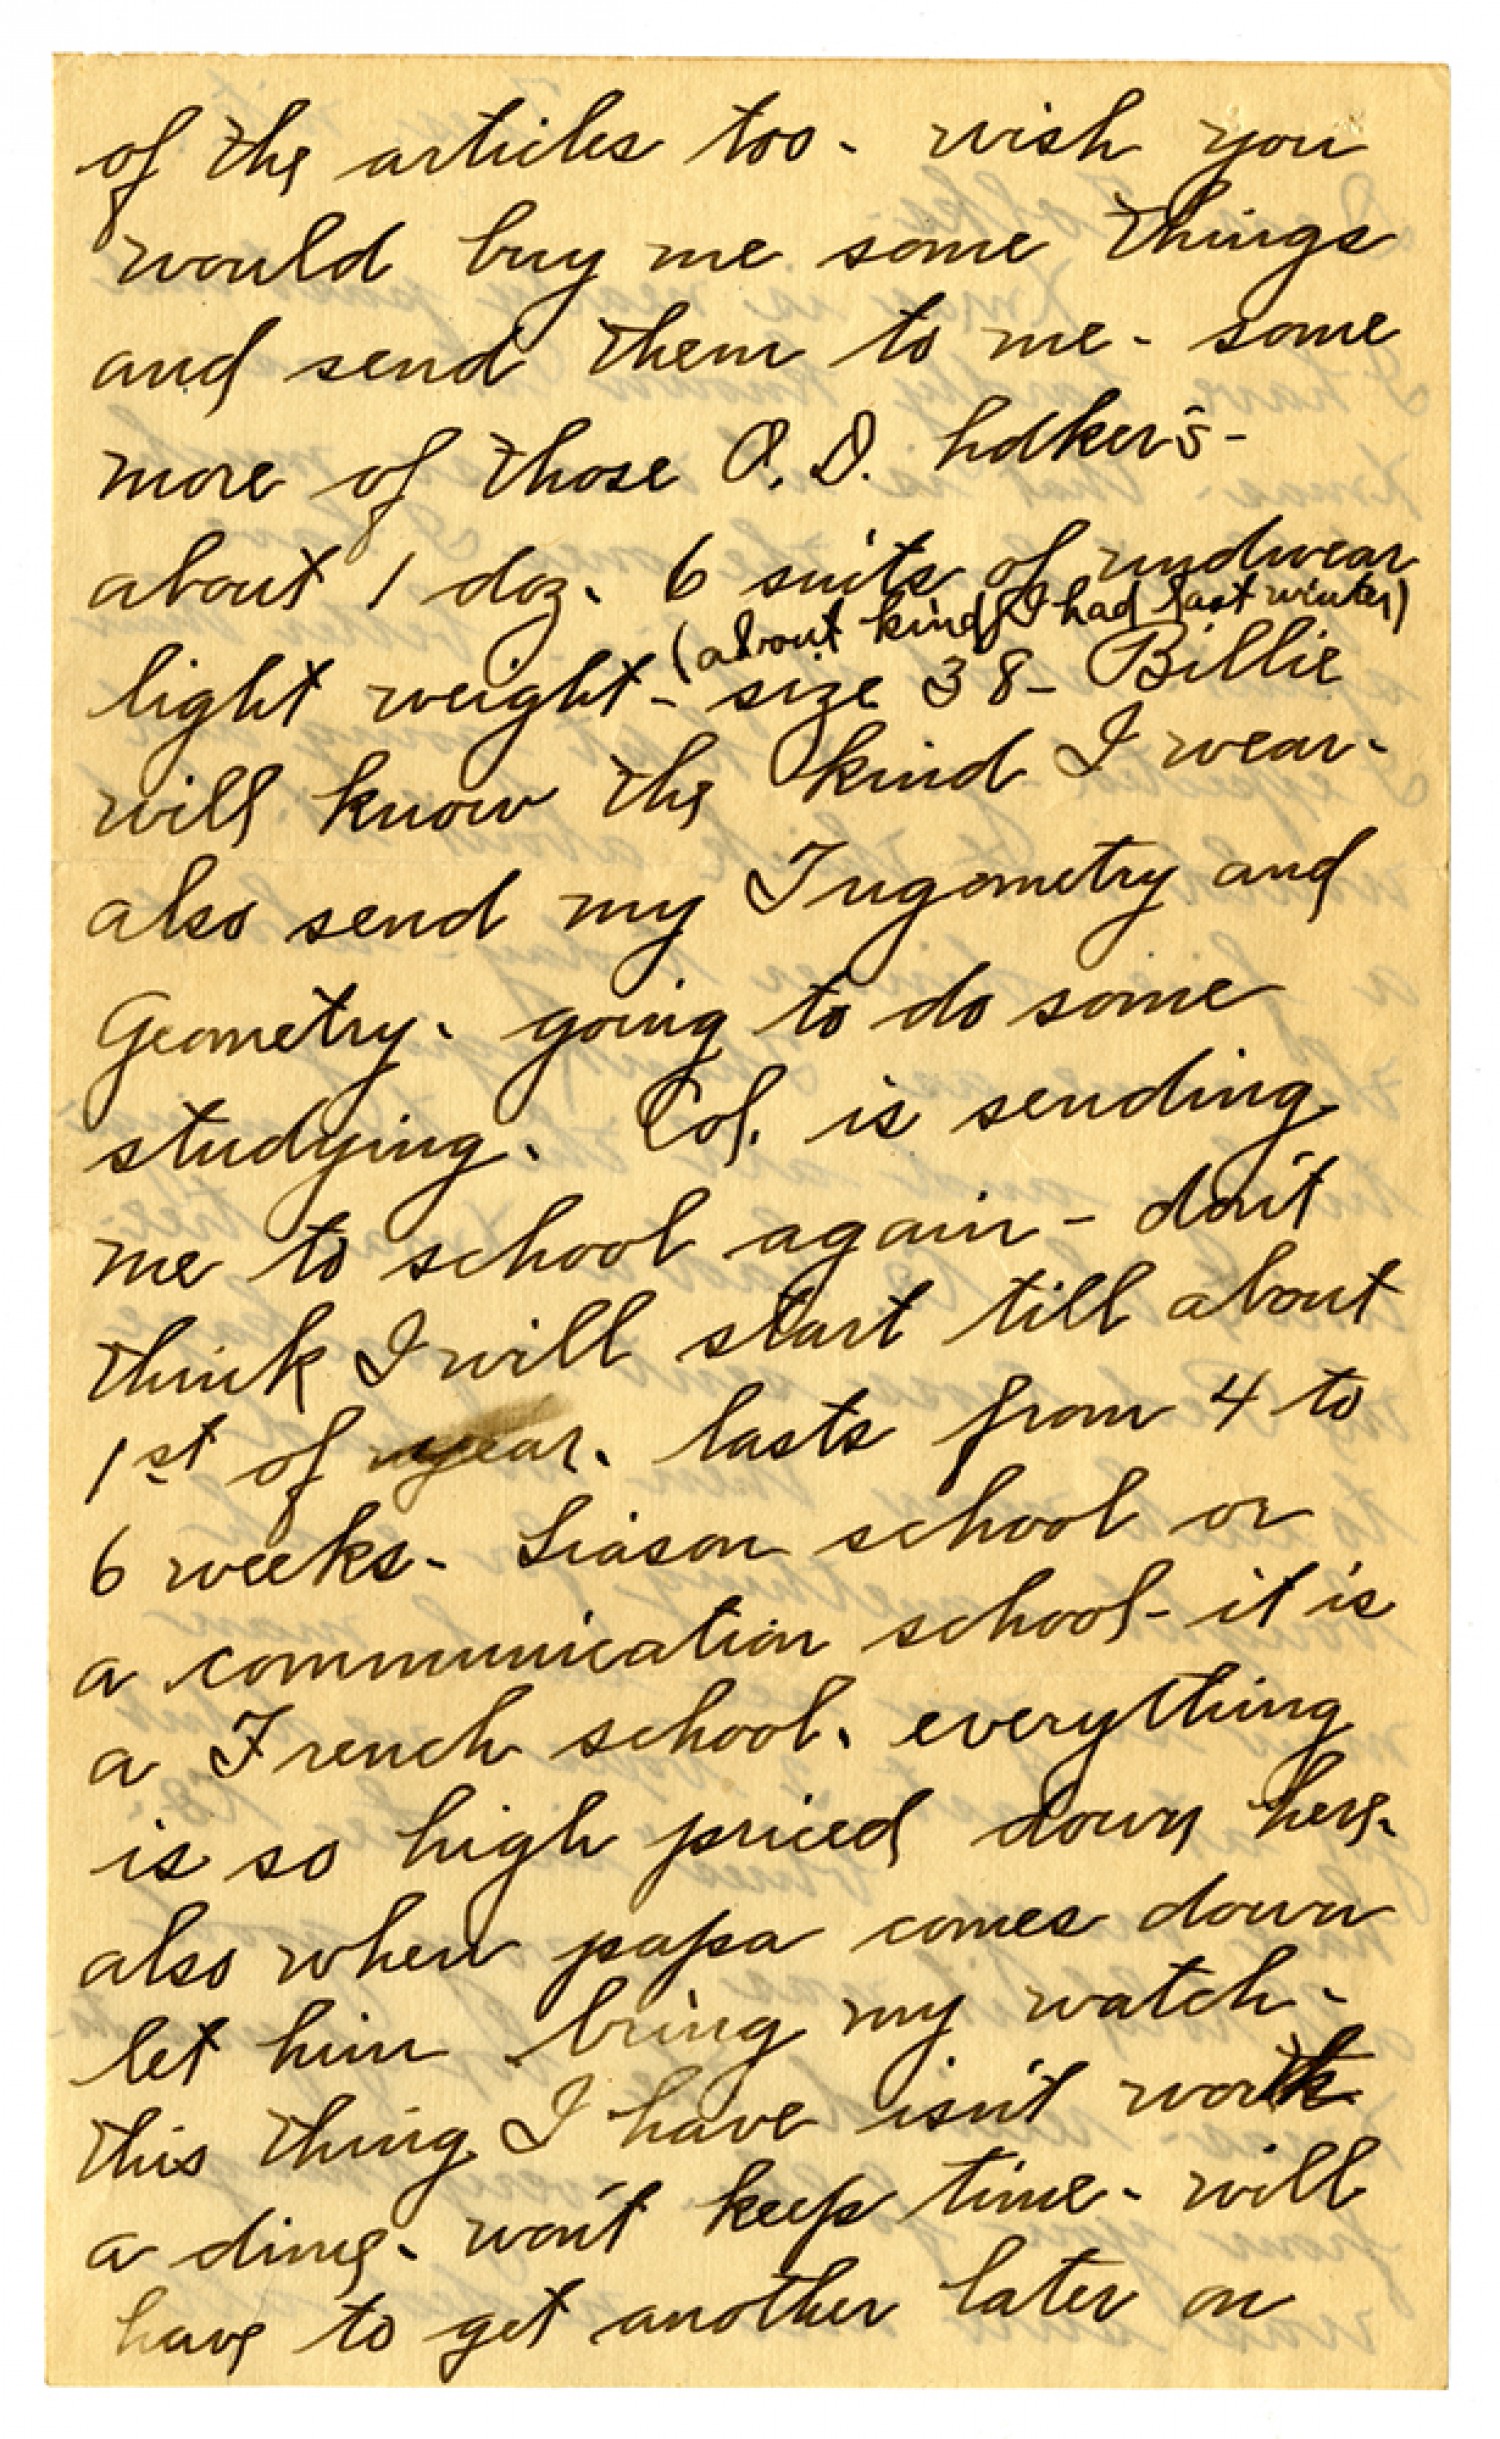 of the articles too - wish you
would buy me some things
and send them to me - some
more of those O.D. hdker's -
about 1 doz. 6 suits of undwear
(about kind I had last winter)
light weight - size 38 - Billie
will know the kind I wear -
also send my Trigometry and
Geometry - going to do some
studying. Col. is sending
me to school again - don't
think I will start till about
1st of year. lasts from 4 to
6 weeks - Liason school or
a communication school - it is
a French school. everything
is so high priced down here.
also when papa comes down
let him bring my watch -
this thing I have isn't worth
a dime - won't keep time - will
have to get another later on